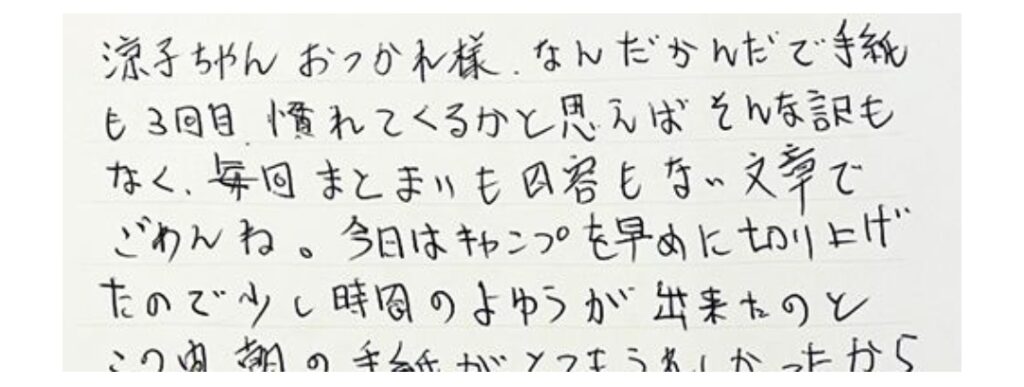 涼子ちゃん おつかれ様.なんだかんだで手紙
も3回目.慣れてくるかと思えば そんな訳も
なく、毎回 まとまりも内容もない文章で
ごめんね。今日はキャンプを早めに切り上げ
たので少し時間のよゆうが出来たのと
この間、朝の手紙がとってもうれしかったから